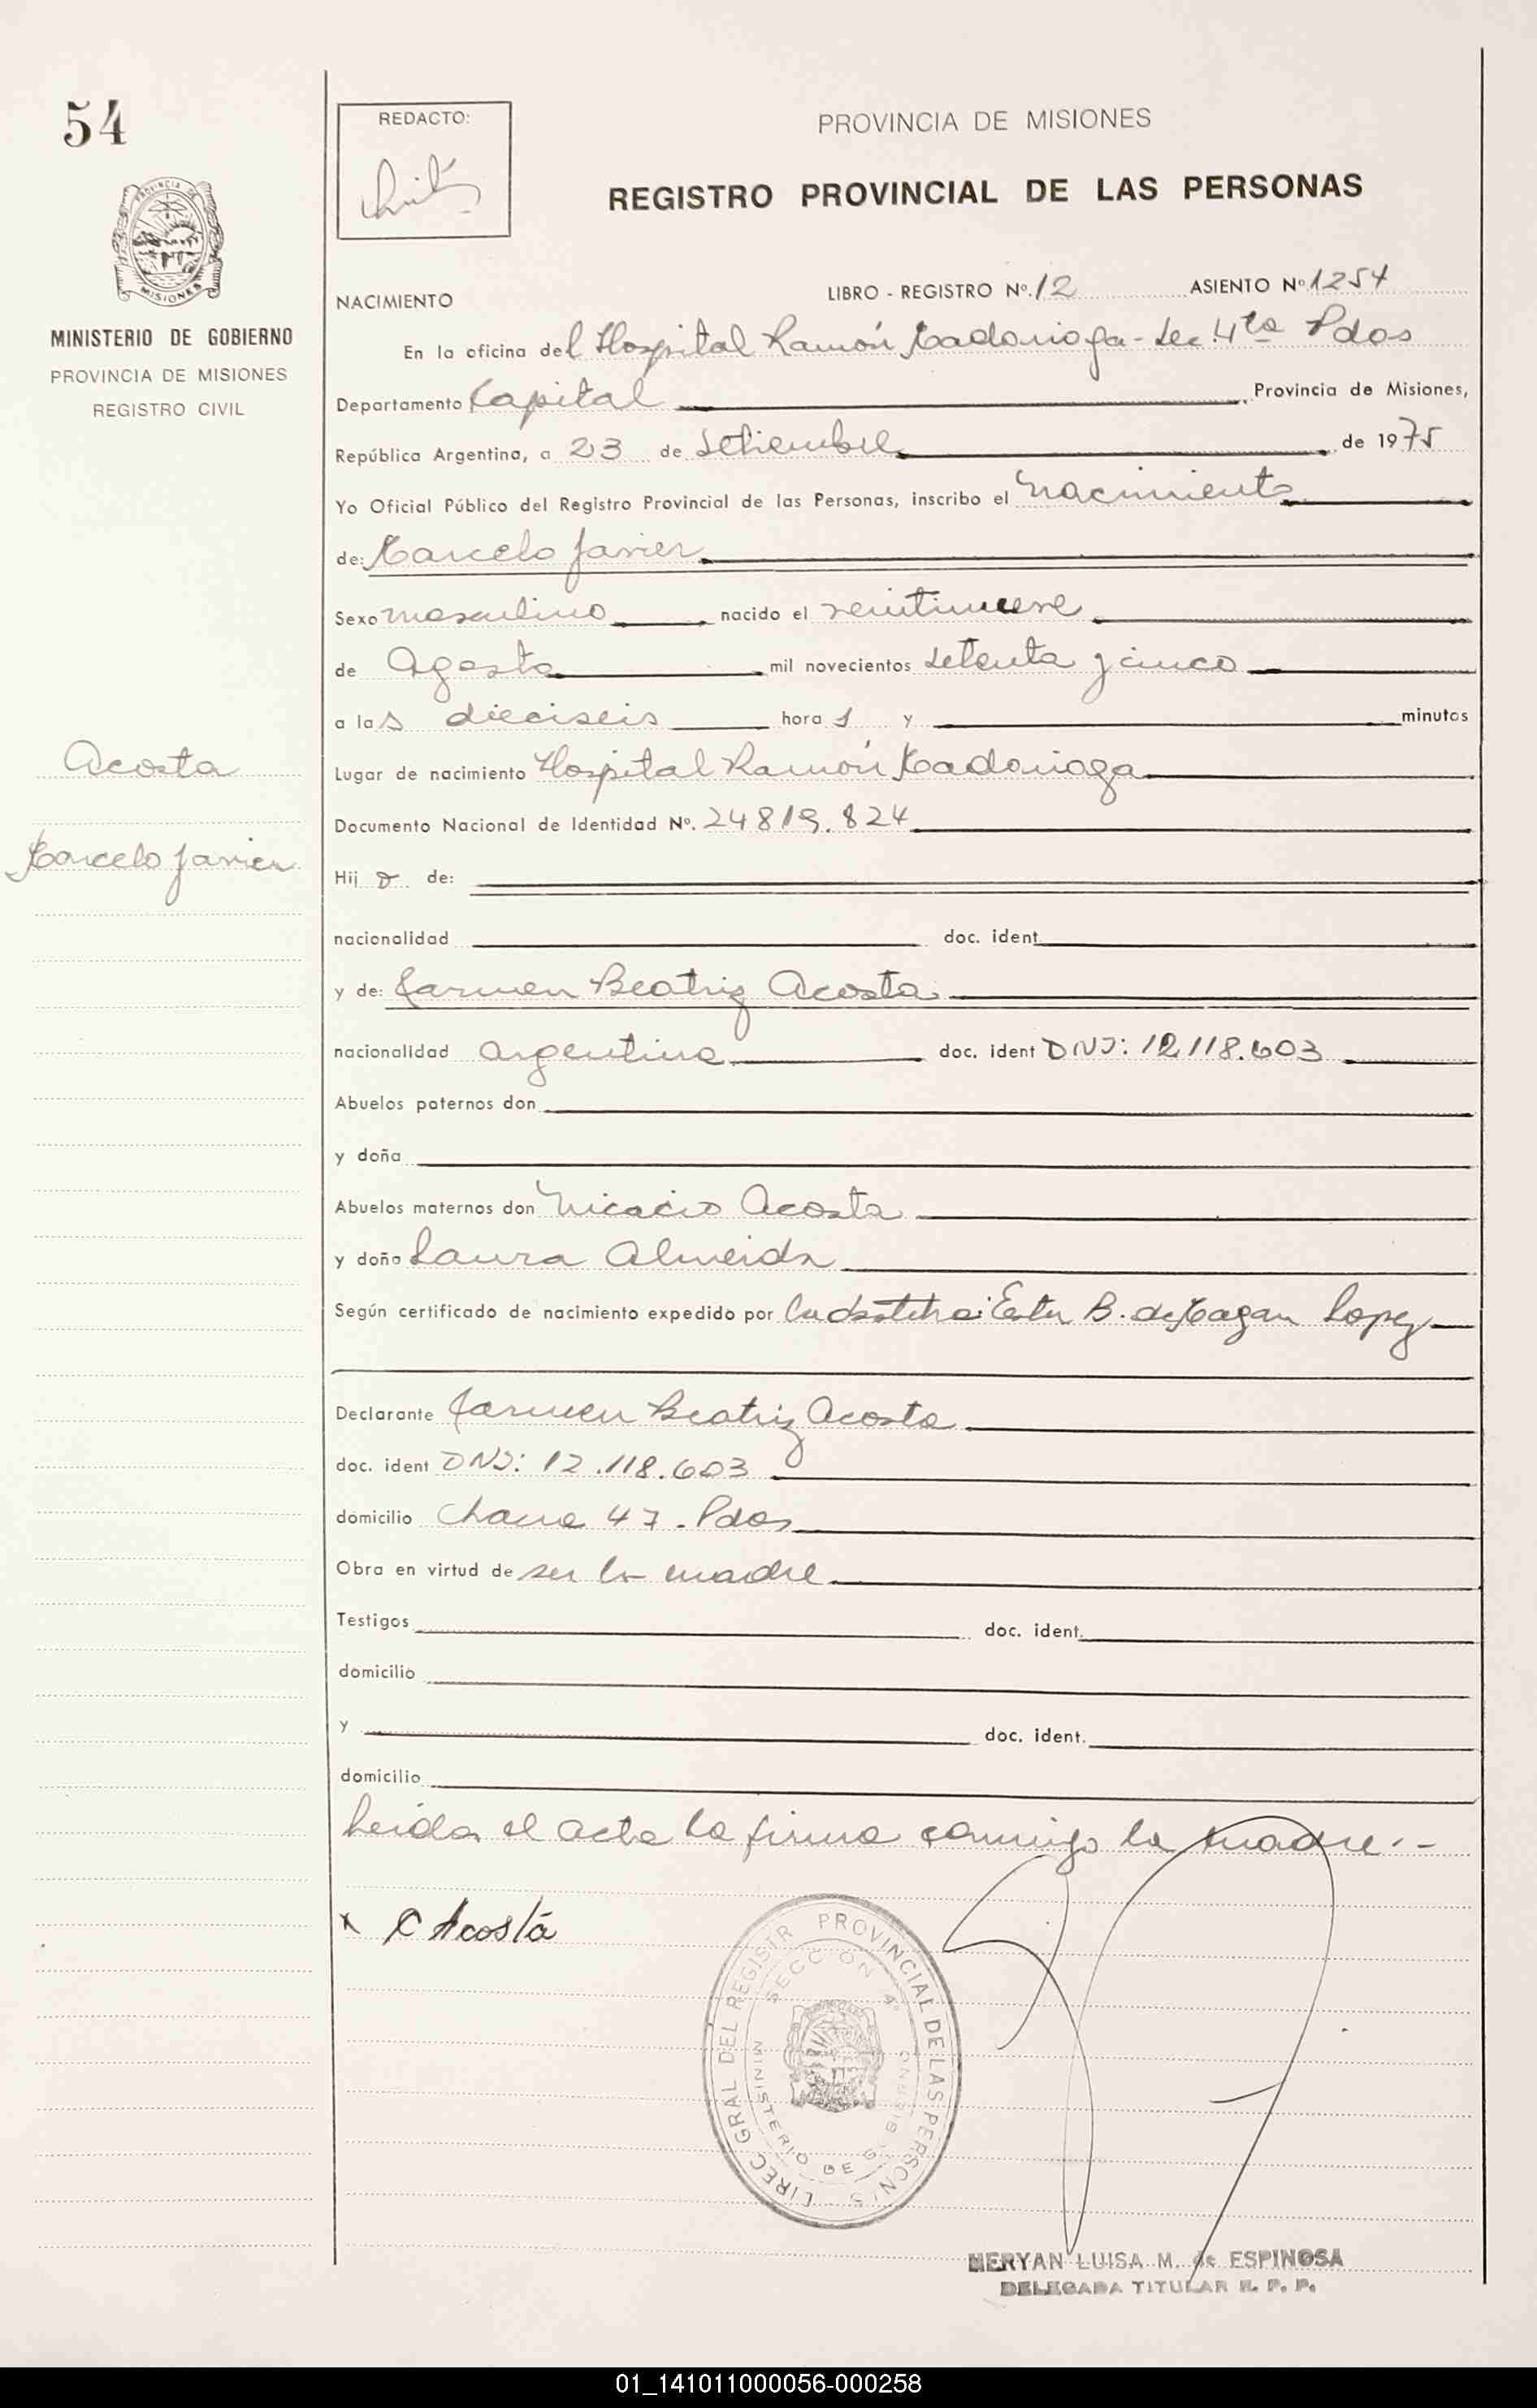 54
REDACTO:
PROVINCIA DE MISIONES
REGISTRO PROVINCIAL DE LAS PERSONAS
PROVINCIA DE
MISIONES
MINISTERIO DE GOBIERNO
PROVINCIA DE MISIONES
REGISTRO CIVIL
NACIMIENTO
LIBRO - REGISTRO Nº. 12 ASIENTO Nº 1254
En la oficina del Hospital Ramón Madariaga - Sec. 4ta Pdas
Departamento Capital, Provincia de Misiones,
República Argentina, a 23 de Setiembre de 1975
Yo Oficial Público del Registro Provincial de las Personas, inscribo el nacimiento
de: Marcelo Javier
Sexo masculino nacido el veintinueve
de Agosto mil novecientos setenta y cinco
a las dieciseis horas y minutos
Acosta
Marcelo Javier
Lugar de nacimiento Hospital Ramón Madariaga
Documento Nacional de Identidad Nº. 24819.824
Hijo de:
nacionalidad doc. ident.
y de: Carmen Beatriz Acosta
nacionalidad argentina doc. ident DNI: 12.118.603
Abuelos paternos don
y doña
Abuelos maternos don Nicacio Acosta
y doña Laura Almeida
Según certificado de nacimiento expedido por Ester B. de Mazan Lopez
Declarante Carmen Beatriz Acosta
doc. ident DNI: 12.118.603
domicilio Chacra 47 - Pdas
Obra en virtud de ser la madre
Testigos doc. ident.
domicilio
y doc. ident.
domicilio
Leida el acta la firma conmigo la madre.-
x C Acosta
DIREC GRAL DEL REGISTR PROVINCIAL DE LAS PERSONAS
SECCION 4º
MINISTERIO DE GOBIERNO
MERYAN LUISA M. de ESPINOSA
DELEGADA TITULAR R. P. P.
01_141011000056-000258